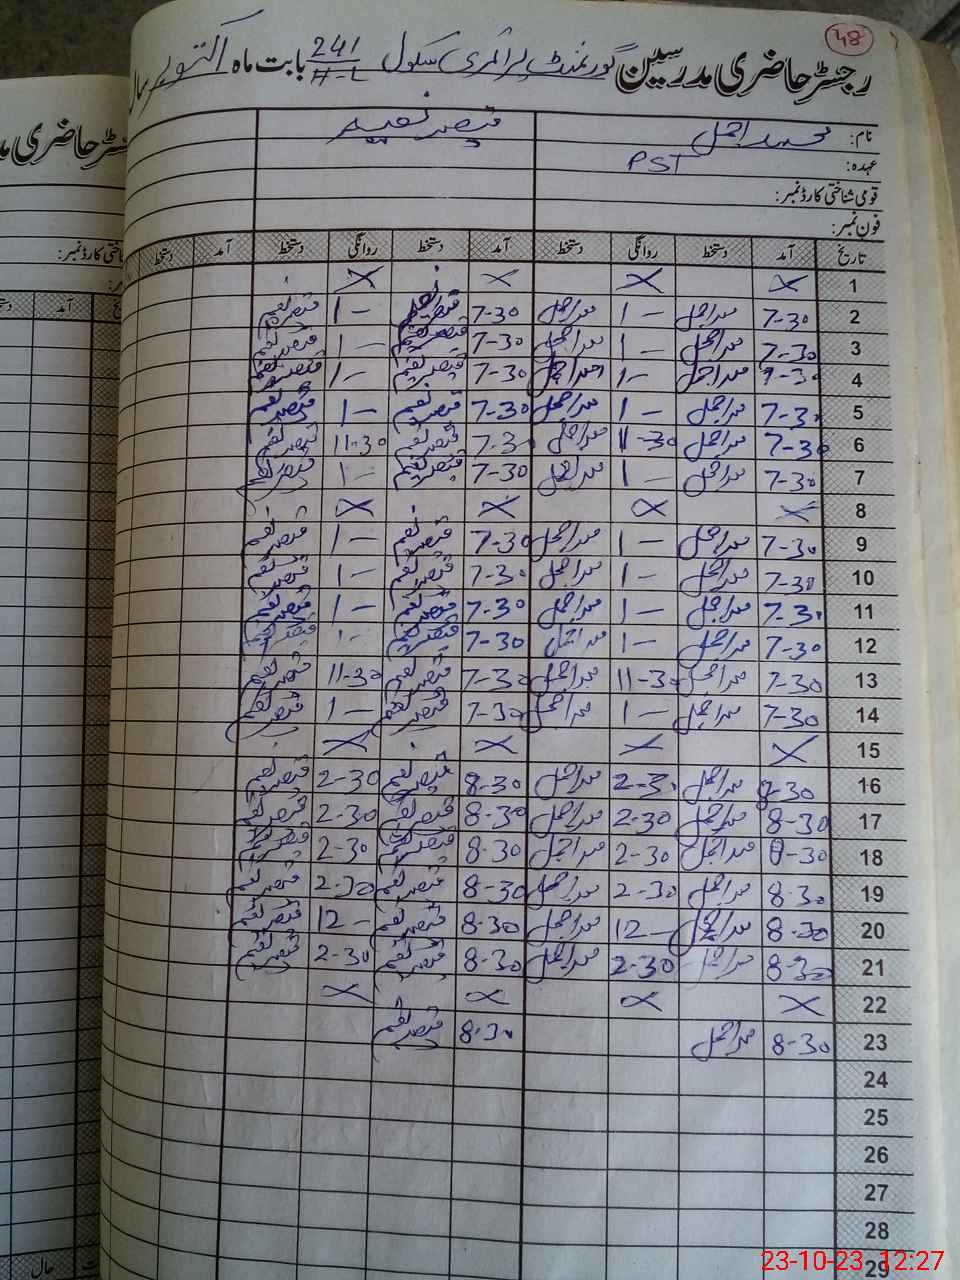 48
رجسٹر حاضری مدرسین گورنمنٹ پرائمری سکول 241/H-L بابت ماہ اکتوبر سال
نام: محمد اجمل قیصر نعیم
عہدہ: PST
قومی شناختی کارڈ نمبر:
فون نمبر:
تاریخ آمد دستخط روانگی دستخط آمد دستخط روانگی دستخط آمد دستخط
1 X X X X
2 7-30 محمد اجمل 1- محمد اجمل 7-30 قیصر نعیم 1- قیصر نعیم
3 7-30 محمد اجمل 1- محمد اجمل 7-30 قیصر نعیم 1- قیصر نعیم
4 7-30 محمد اجمل 1- محمد اجمل 7-30 قیصر نعیم 1- قیصر نعیم
5 7-30 محمد اجمل 1- محمد اجمل 7-30 قیصر نعیم 1- قیصر نعیم
6 7-30 محمد اجمل 11-30 محمد اجمل 7-30 قیصر نعیم 11-30 قیصر نعیم
7 7-30 محمد اجمل 1- محمد اجمل 7-30 قیصر نعیم 1- قیصر نعیم
8 X X X X
9 7-30 محمد اجمل 1- محمد اجمل 7-30 قیصر نعیم 1- قیصر نعیم
10 7-30 محمد اجمل 1- محمد اجمل 7-30 قیصر نعیم 1- قیصر نعیم
11 7-30 محمد اجمل 1- محمد اجمل 7-30 قیصر نعیم 1- قیصر نعیم
12 7-30 محمد اجمل 1- محمد اجمل 7-30 قیصر نعیم 1- قیصر نعیم
13 7-30 محمد اجمل 11-30 محمد اجمل 7-30 قیصر نعیم 11-30 قیصر نعیم
14 7-30 محمد اجمل 1- محمد اجمل 7-30 قیصر نعیم 1- قیصر نعیم
15 X X X X
16 8-30 محمد اجمل 2-30 محمد اجمل 8-30 قیصر نعیم 2-30 قیصر نعیم
17 8-30 محمد اجمل 2-30 محمد اجمل 8-30 قیصر نعیم 2-30 قیصر نعیم
18 8-30 محمد اجمل 2-30 محمد اجمل 8-30 قیصر نعیم 2-30 قیصر نعیم
19 8-30 محمد اجمل 2-30 محمد اجمل 8-30 قیصر نعیم 2-30 قیصر نعیم
20 8-30 محمد اجمل 12- محمد اجمل 8-30 قیصر نعیم 12- قیصر نعیم
21 8-30 محمد اجمل 2-30 محمد اجمل 8-30 قیصر نعیم 2-30 قیصر نعیم
22 X X X X
23 8-30 محمد اجمل 8-30 قیصر نعیم
24
25
26
27
28
29
رجسٹر حاضری
شناختی کارڈ نمبر:
آمد
حال
23-10-23 12:27